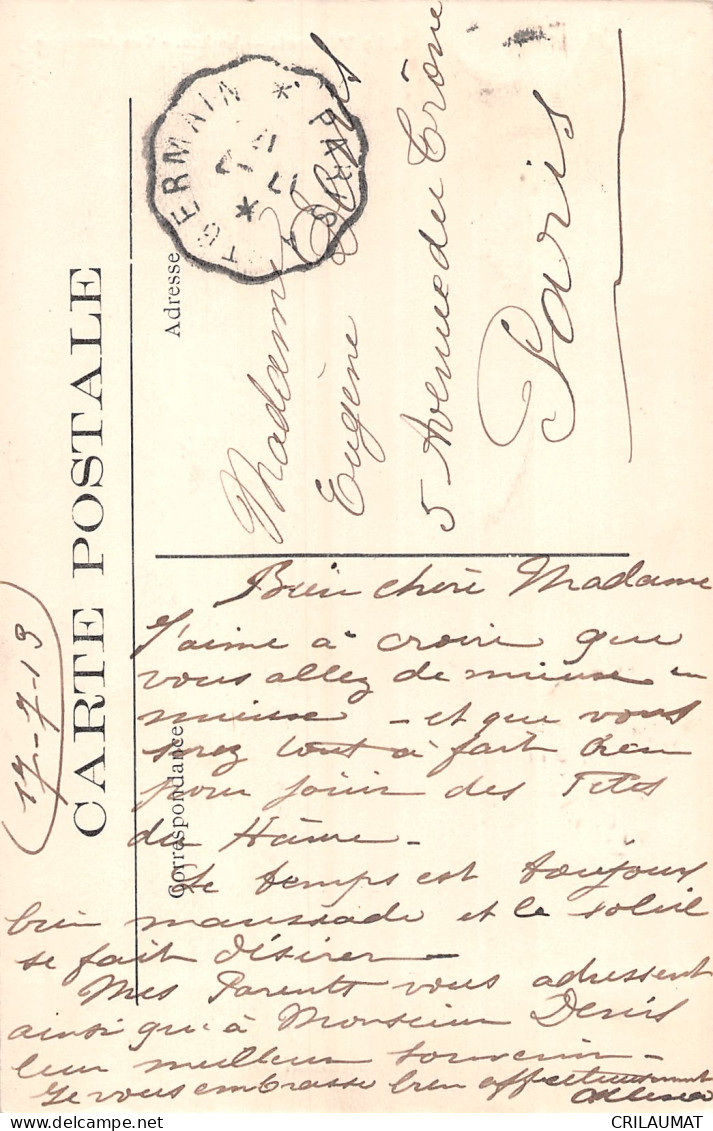 CARTE POSTALE
Correspondance
Adresse
PARIS A ST GERMAIN
17
17-7-13
Madame
Eugène Denis
5 Avenue du Trône
Paris
Bien chère Madame
J'aime à croire que
vous allez de mieux en
mieux - et que vous
serez tout à fait bien
pour jouir des Fêtes
du Hâvre -
Le temps est toujours
bien maussade et le soleil
se fait désirer -
Mes Parents vous adressent
ainsi qu'à Monsieur Denis
leur meilleur souvenir -
Je vous embrasse bien affectueusement
delcampe.net
CRILAUMAT